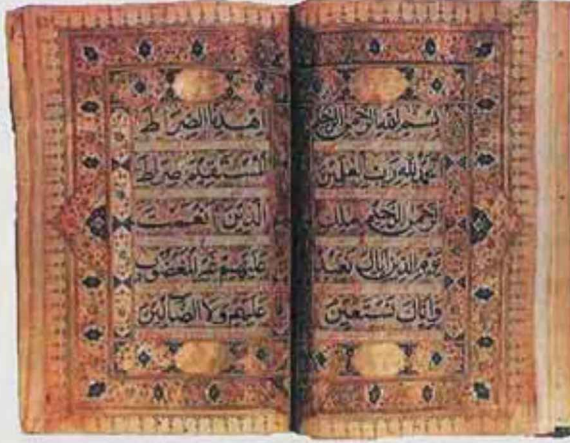 بسم الله الرحمن الرحيم
الحمد لله رب العلمين
الرحمن الرحيم ملك
يوم الدين اياك نعبد
واياك نستعين
اهدنا الصراط
المستقيم صراط
الذين انعمت
عليهم غير المغضوب
عليهم ولا الضالين